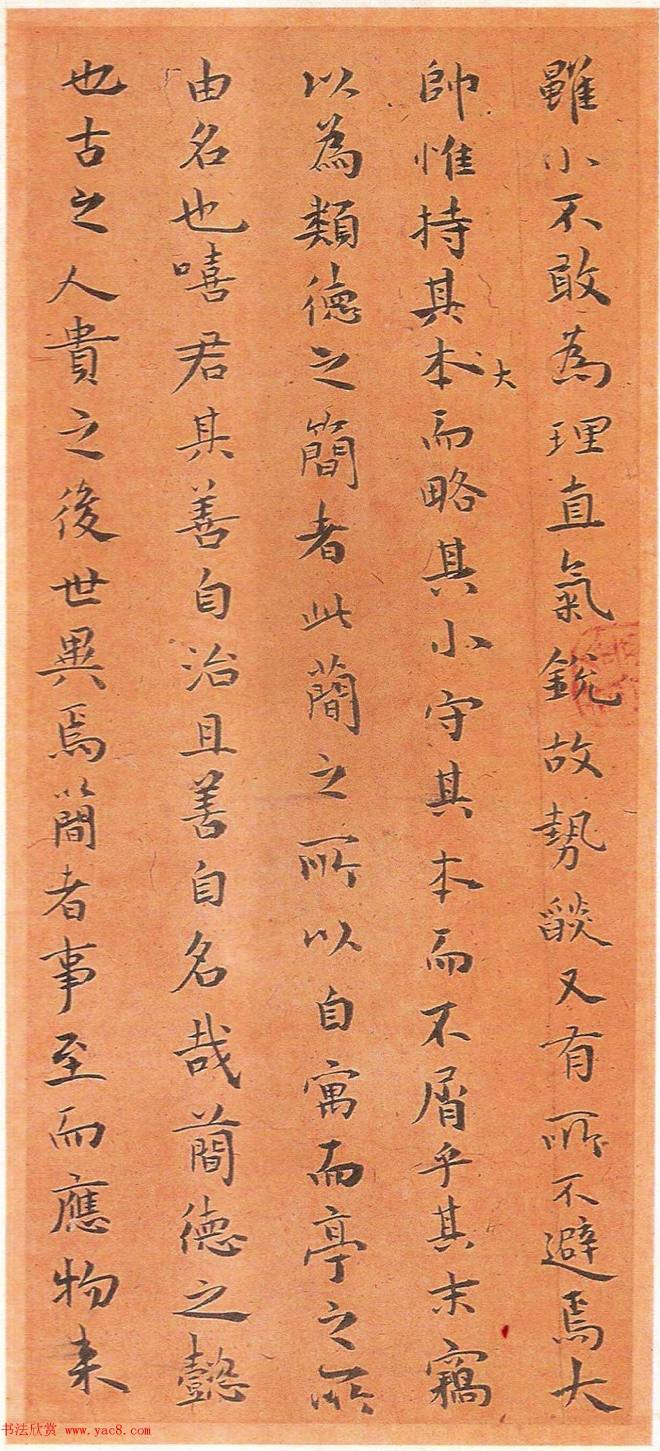 雖小不敢為理直氣銳故勢燄又有所不避焉大
帥惟持其本而略其小守其本而不屑乎其末竊
大
以為類德之簡者此簡之所以自寓而亭之所
由名也嘻君其善自治且善自名哉簡德之懿
也古之人貴之後世異焉簡者事至而應物来
书法欣赏 www.yac8.com